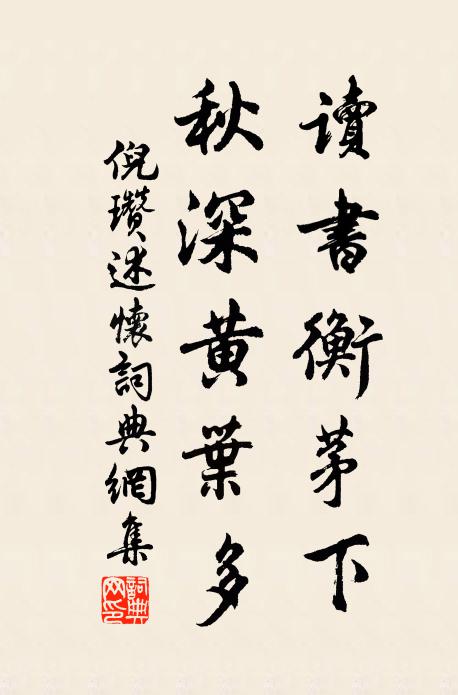 讀書衡茅下
秋深黄葉多
倪瓚述懷詞典網集
詞典網印